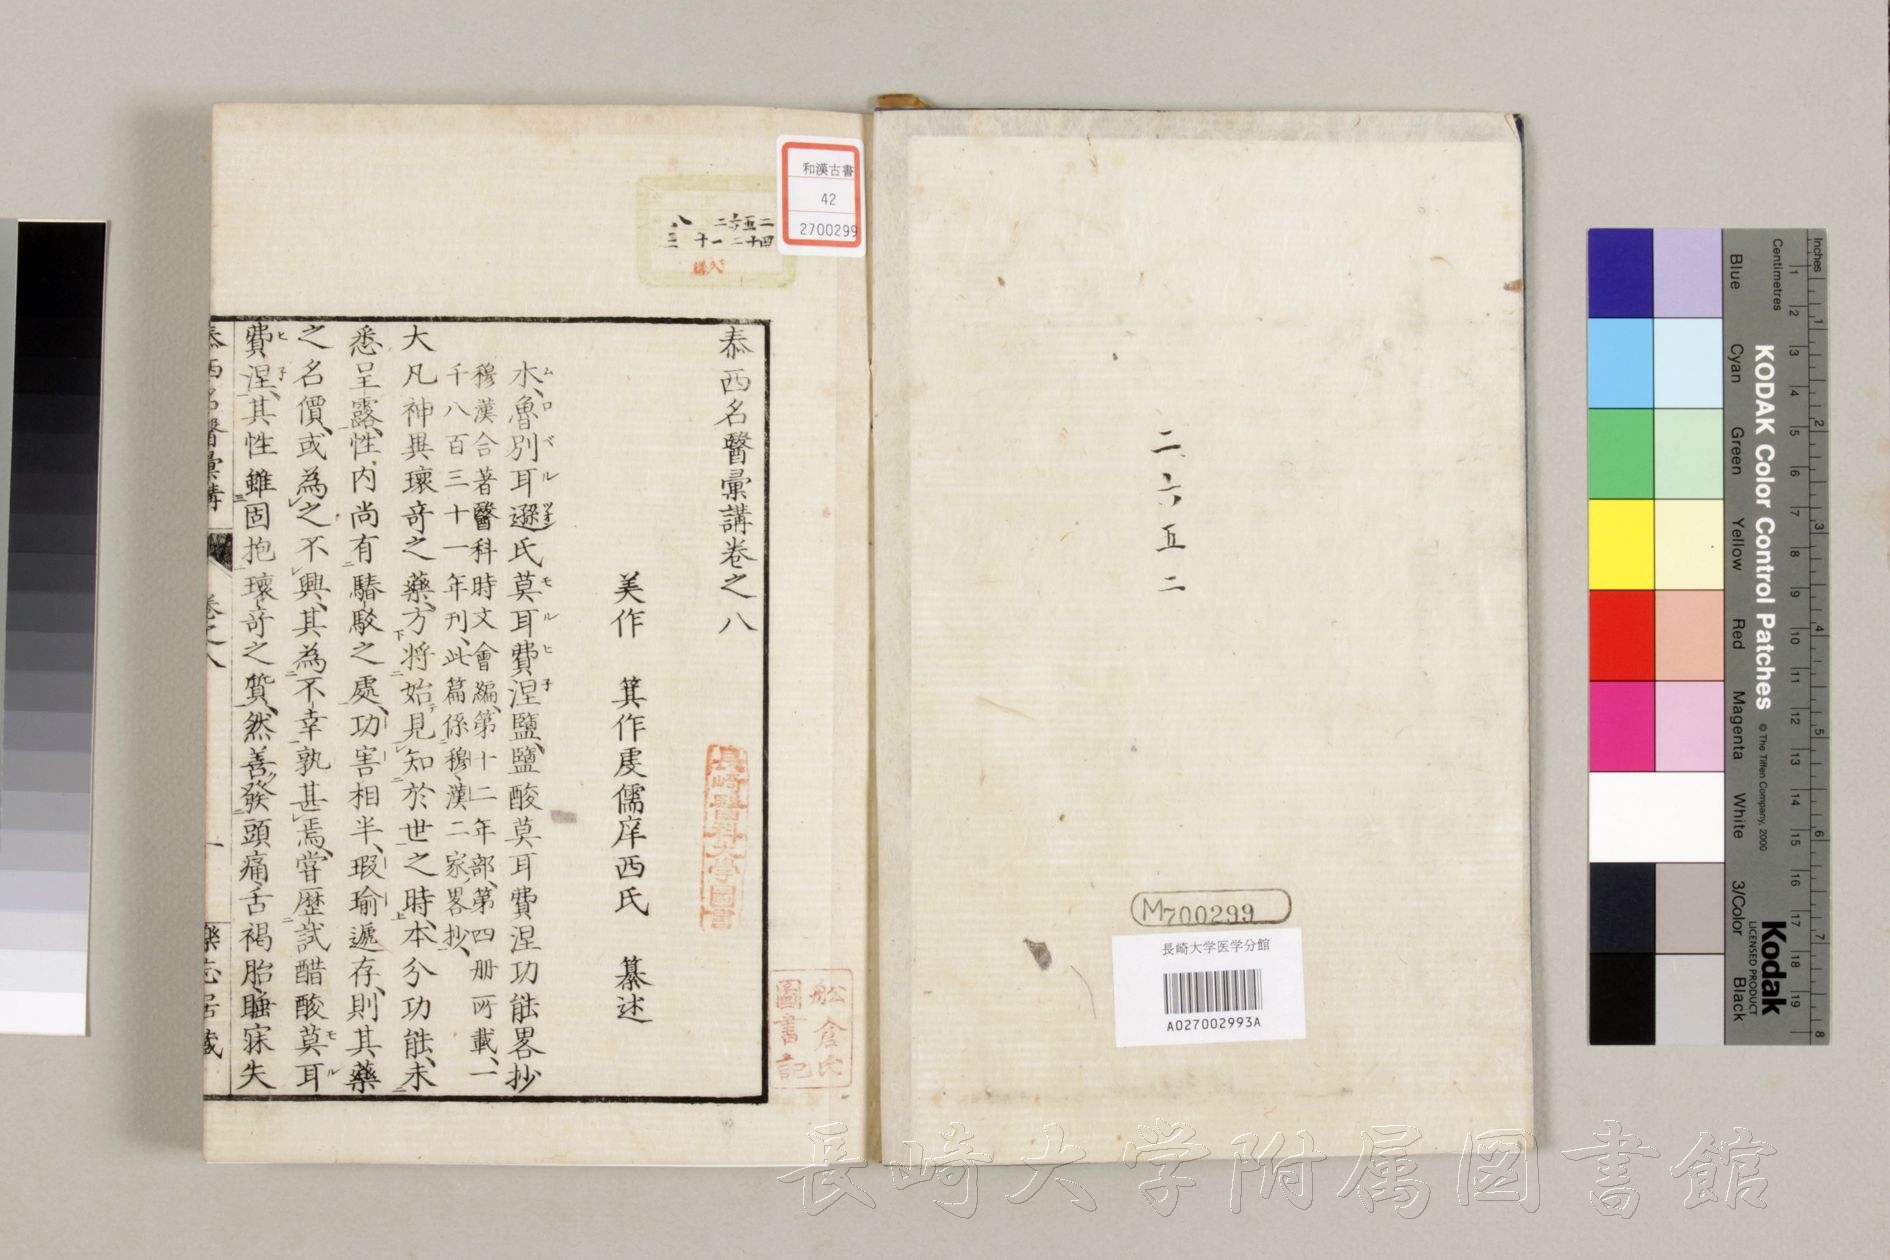 二六五二
M700299
長崎大学医学分館
A027002993A
和漢古書
42
2700299
泰西名醫彙講卷之八
美作 箕作虔儒庠西氏 纂述
水魯別耳遜氏莫耳費涅鹽、鹽酸莫耳費涅功能畧抄
穆漢合著醫科時文會編、第十二年部、第四册所載、一
千八百三十一年刊、此篇係穆漢二家畧抄、
大凡神異瓌奇之藥、方將始見知於世之時、本分功能、未
悉呈露、性内尚有驕駁之處、功害相半、瑕瑜遞存、則其藥
之名價、或為之不興、其為不幸孰甚焉、嘗歴試醋酸莫耳
費涅、其性雖固抱瓌奇之質、然善發頭痛、舌褐胎、睡寐失
泰西名醫彙講 卷之八 一
長崎醫科大學圖書
舩倉氏
圖書記
Inches
Centimetres
KODAK Color Control Patches
© The Tiffen Company, 2000
Blue
Cyan
Green
Yellow
Red
Magenta
White
3/Color
Black
Kodak
LICENSED PRODUCT
長崎大学附属図書館